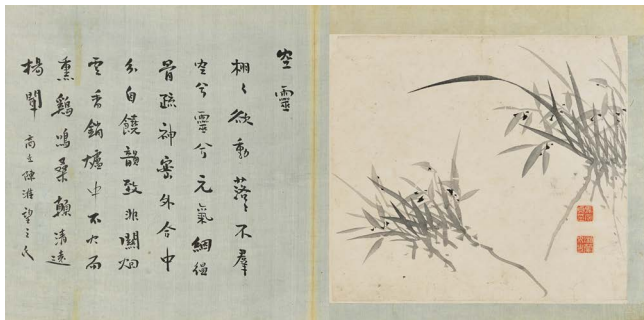 空靈
栩〻欲動落〻不羣
空兮靈兮元氣絪縕
骨疏神宻外合中
分自饒韻致非關烟
雲香銷爐中不火而
熏鷄鳴桑顛清遠
揚聞